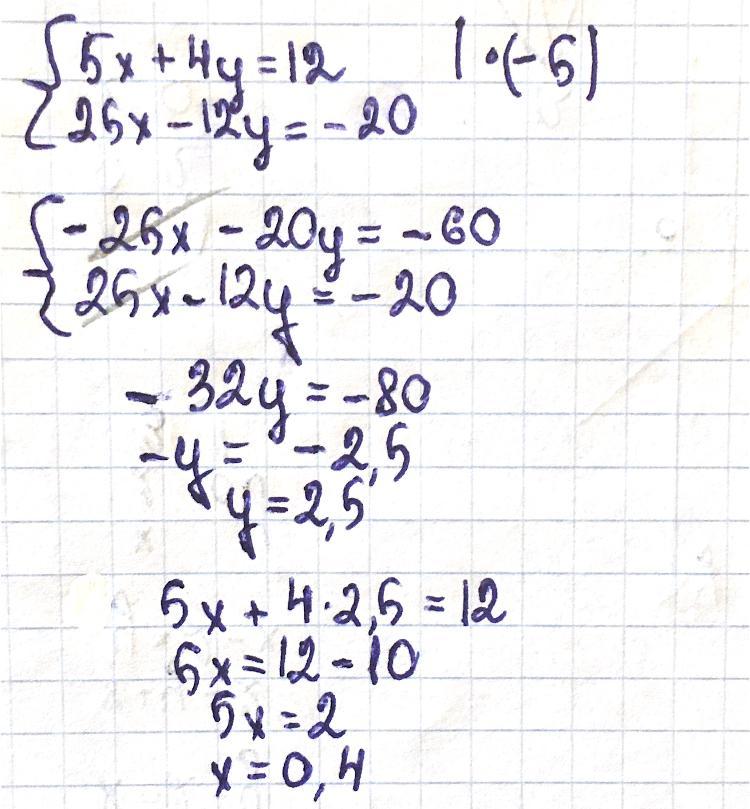 { 5x + 4y = 12 | · (-5)
25x - 12y = -20
{ -25x - 20y = -60
25x - 12y = -20
- 32y = -80
-y = -2,5
y = 2,5
5x + 4·2,5 = 12
5x = 12 - 10
5x = 2
x = 0,4